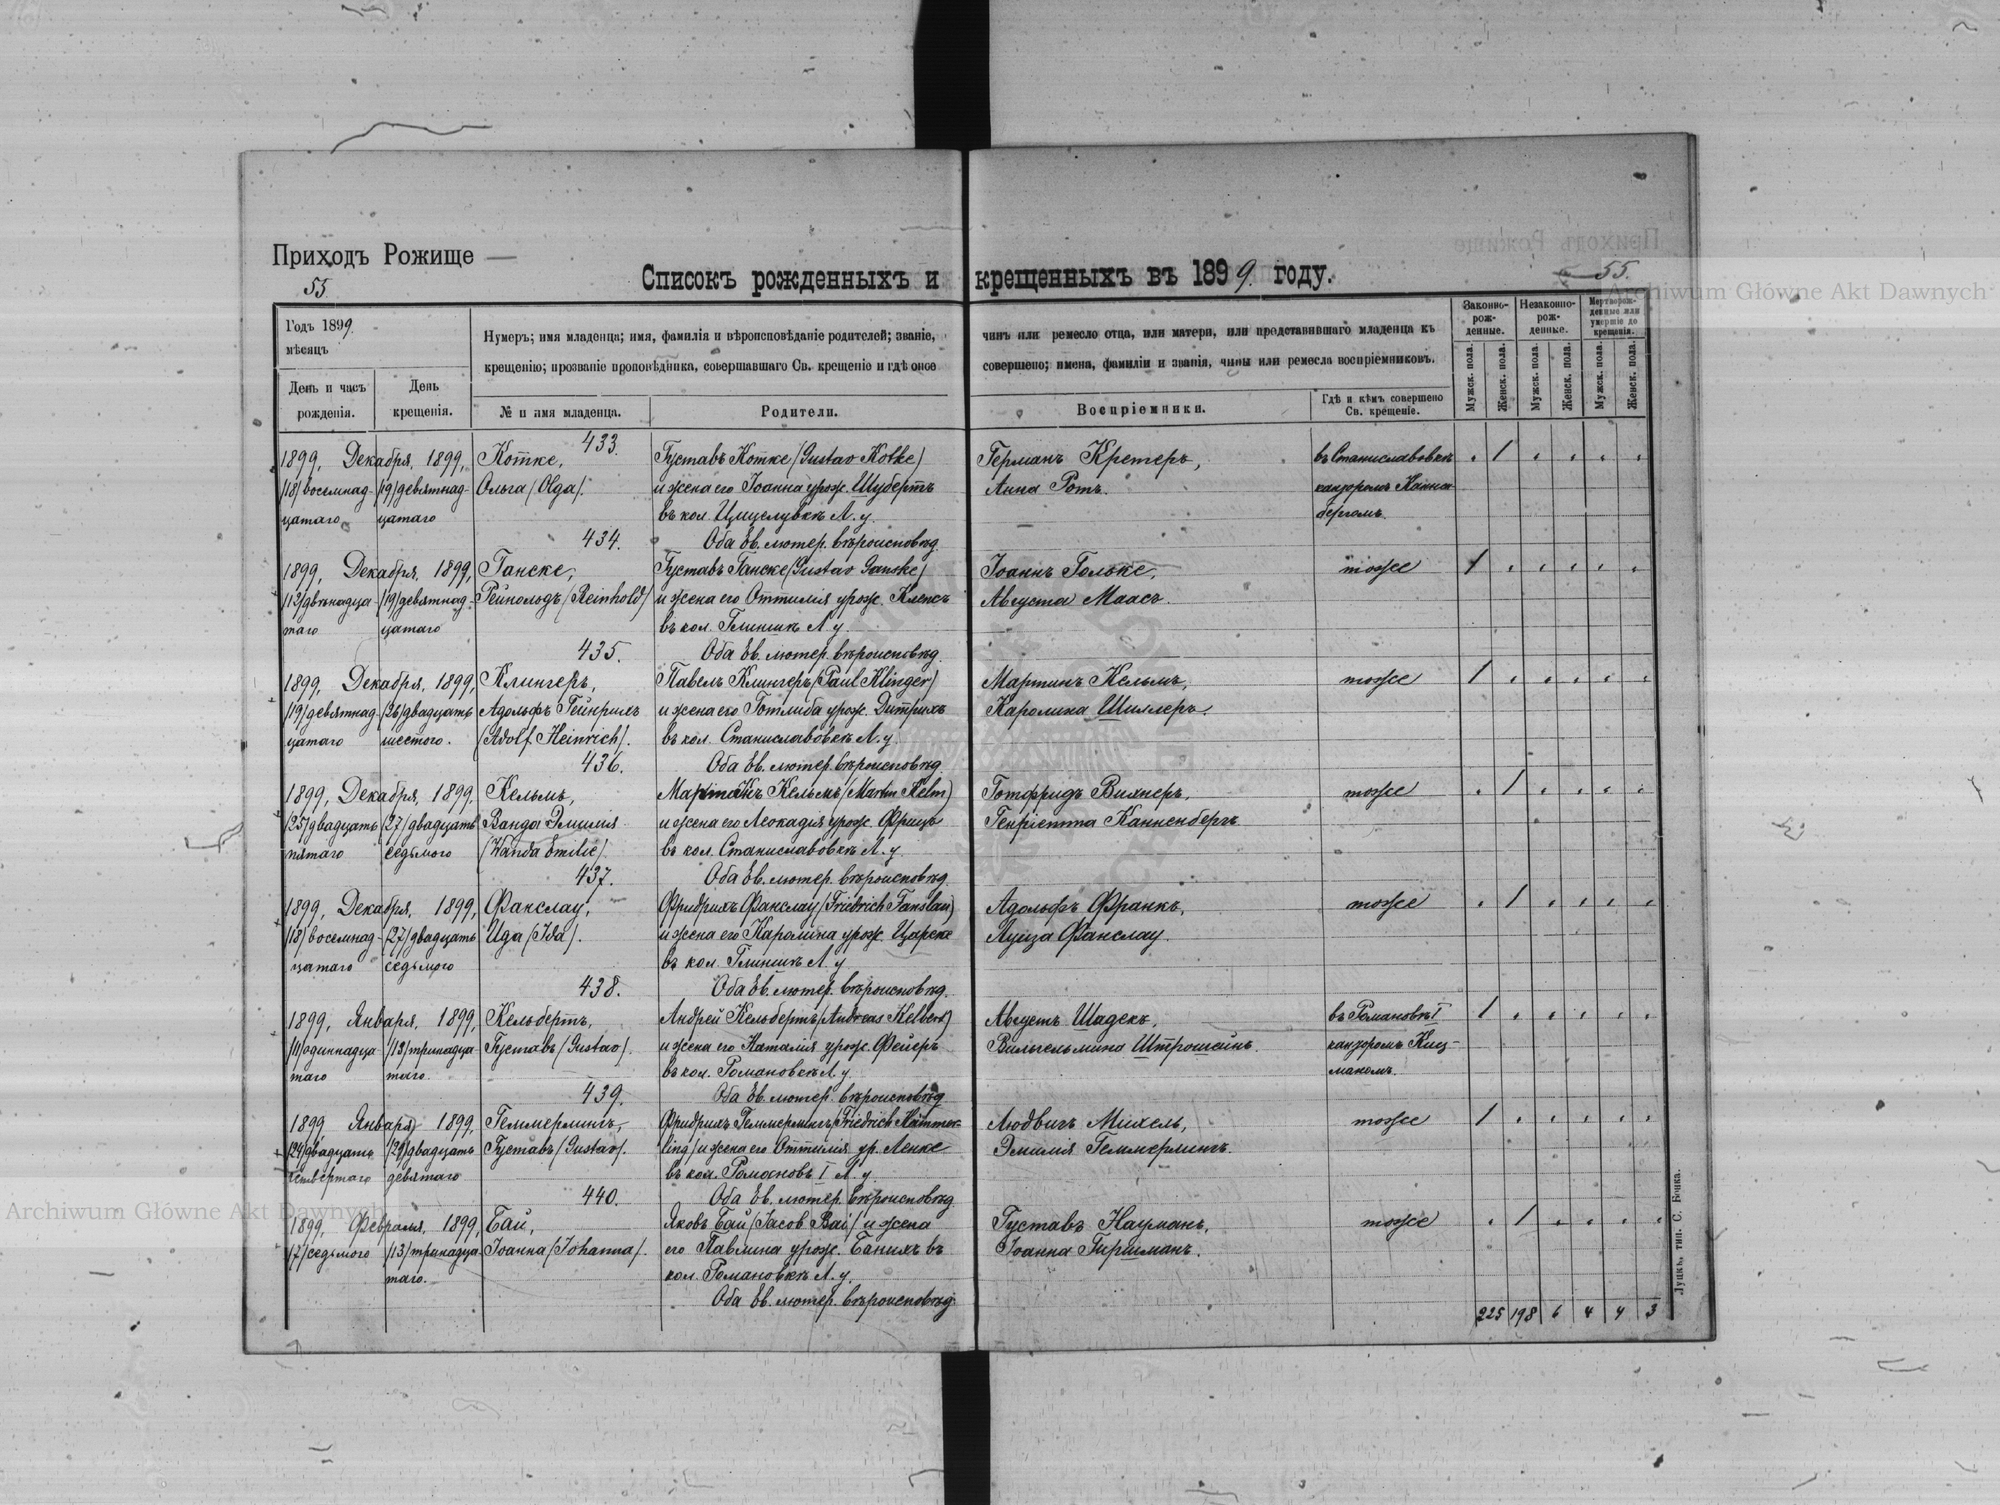 Приходъ Рожище —
55.
Списокъ рожденныхъ и крещенныхъ въ 1899. году.
55.
Archiwum Główne Akt Dawnych
Годъ 1899.
мѣсяцъ
День и часъ рожденія.
День крещенія.
Нумеръ; имя младенца; имя, фамилія и вѣроисповѣданіе родителей; званіе,
крещенію; прозваніе проповѣдника, совершавшаго Св. крещеніе и гдѣ оное
№ и имя младенца.
Родители.
чинъ или ремесло отца, или матери, или представившаго младенца къ
совершено; имена, фамиліи и званія, чины или ремесла воспріемниковъ.
Воспріемники.
Гдѣ и кѣмъ совершено
Св. крещеніе.
Законно-рож-денные.
Незаконно-рож-денные.
Мертворож-денные или умершіе до крещенія.
Мужск. пола.
Женск. пола.
Мужск. пола.
Женск. пола.
Мужск. пола.
Женск. пола.
433.
1899, Декабря, 1899, Котке, Густавъ Котке /Gustav Kotke/ Германъ Кретеръ, въ Станиславовкѣ . 1 . . . .
/18/ восемнад- /19/ девятнад- Ольга /Olga/. и жена его Іоанна урож. Шубертъ Анна Ротъ. канторомъ Канна-
цатаго цатаго въ кол. Цицелувкѣ Л. у. бергомъ.
434. Оба Ев. лютер. вѣроисповѣд.
1899, Декабря, 1899, Ганске, Густавъ Ганске /Gustav Ganske/ Іоаннъ Гольке, тоже 1 . . . . .
/12/ двѣнадца- /19/ девятнад- Рейнольдъ /Reinhold/ и жена его Оттилія урож. Клексъ Августа Маасъ.
таго цатаго въ кол. Глинищѣ Л. у.
435. Оба Ев. лютер. вѣроисповѣд.
1899, Декабря, 1899, Клингеръ, Павелъ Клингеръ /Paul Klinger/ Мартинъ Кельмъ, тоже 1 . . . . .
/19/ девятнад- /26/ двадцать Адольфъ Гейнрихъ и жена его Готлиба урож. Дитрихъ Каролина Шиллеръ.
цатаго шестого. /Adolf Heinrich/. въ кол. Станиславовкѣ Л. у.
436. Оба Ев. лютер. вѣроисповѣд.
1899, Декабря, 1899, Кельмъ, Мартинъ Кельмъ /Martin Kelm/ Готфридъ Вихнеръ, тоже . 1 . . . .
/25/ двадцать /27/ двадцать Ванда Эмилія и жена его Леокадія урож. Фрицъ Генріетта Канненбергъ.
пятаго седьмого /Wanda Emilie/ въ кол. Станиславовкѣ Л. у.
437. Оба Ев. лютер. вѣроисповѣд.
1899, Декабря, 1899, Фанслау, Фридрихъ Фанслау /Friedrich Fanslau/ Адольфъ Франкъ, тоже . 1 . . . .
/18/ восемнад- /27/ двадцать Ида /Ida/. и жена его Каролина урож. Царске Луиза Фанслау.
цатаго седьмого въ кол. Глинищѣ Л. у.
438. Оба Ев. лютер. вѣроисповѣд.
1899, Января, 1899, Кельбертъ, Андрей Кельбертъ /Andreas Kelbert/ Августъ Шадекъ, въ Романовкѣ I 1 . . . . .
/11/ одиннадца- /13/ тринадца- Густавъ /Gustav/. и жена его Наталія урож. Фейеръ Вильгельмина Штрошейнъ. канторомъ Киц-
таго таго. въ кол. Романовкѣ Л. у. маномъ.
439. Оба Ев. лютер. вѣроисповѣд.
1899 Января, 1899, Геммерлингъ, Фридрихъ Геммерлингъ /Friedrich Hämmer- Людвигъ Михель, тоже 1 . . . . .
/24/ двадцать /29/ двадцать Густавъ /Gustav/. ling/ и жена его Оттилія ур. Ленке Эмилія Геммерлингъ.
четвертаго девятаго въ кол. Романовъ I Л. у.
440. Оба Ев. лютер. вѣроисповѣд.
1899, Февраля, 1899, Бай, Яковъ Бай /Jacob Bai/ и жена Густавъ Науманъ, тоже . 1 . . . .
/7/ седьмого /13/ тринадца- Іоанна /Johanna/. его Павлина урож. Банихъ въ Іоанна Гиршманъ.
таго. кол. Романовкѣ Л. у.
Оба Ев. лютер. вѣроисповѣд.
225 198 6 4 4 3
Луцкъ, тип. С. Бонка.
Archiwum Główne Akt Dawnych